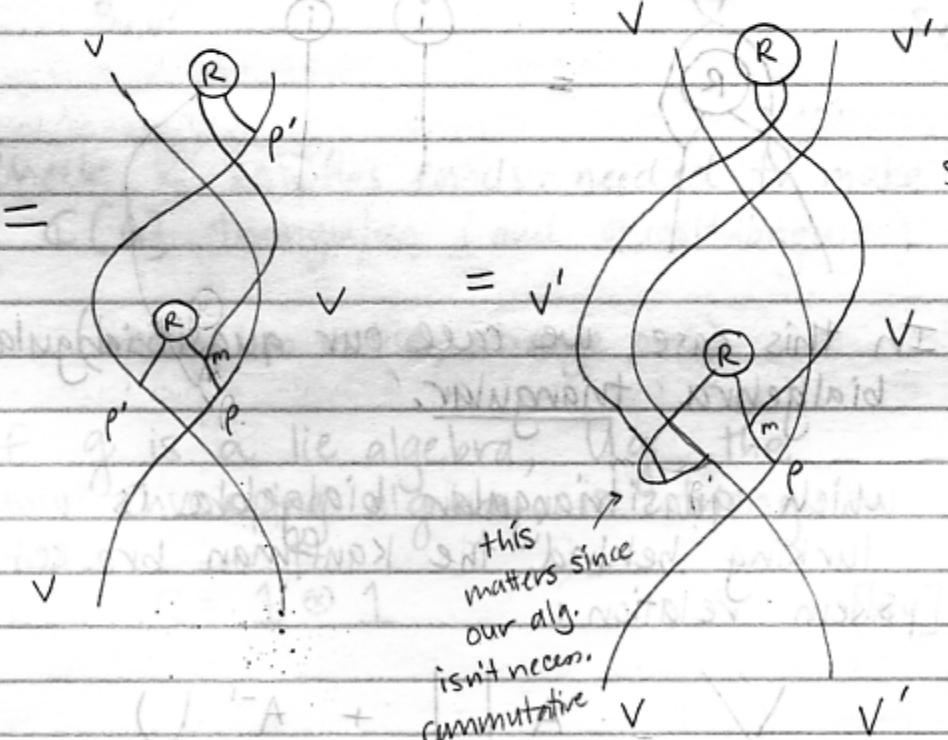 V
R
ρ'
=
R
m
V
ρ'
ρ
V
V
R
V'
=
V'
R
V
m
ρ
this
matters since
our alg.
isn't necess.
commutative
V
V'